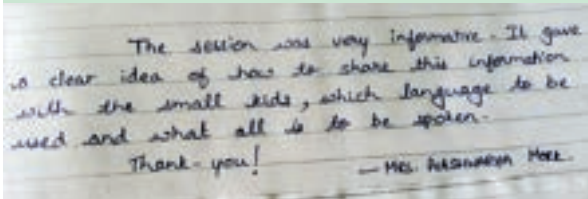 The session was very informative. It gave
a clear idea of how to share this information
with the small kids, which language to be
used and what all is to be spoken.
Thank-you!
— Mrs. Aishwarya More.